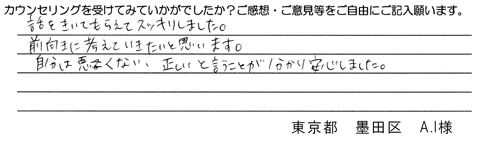 カウンセリングを受けてみていかがでしたか？ご感想・ご意見等をご自由にご記入願います。
話をきいてもらえてスッキリしました。
前向きに考えていきたいと思います。
自分は悪くない、正しいと言うことが分かり安心しました。
東京都　墨田区　A.I様